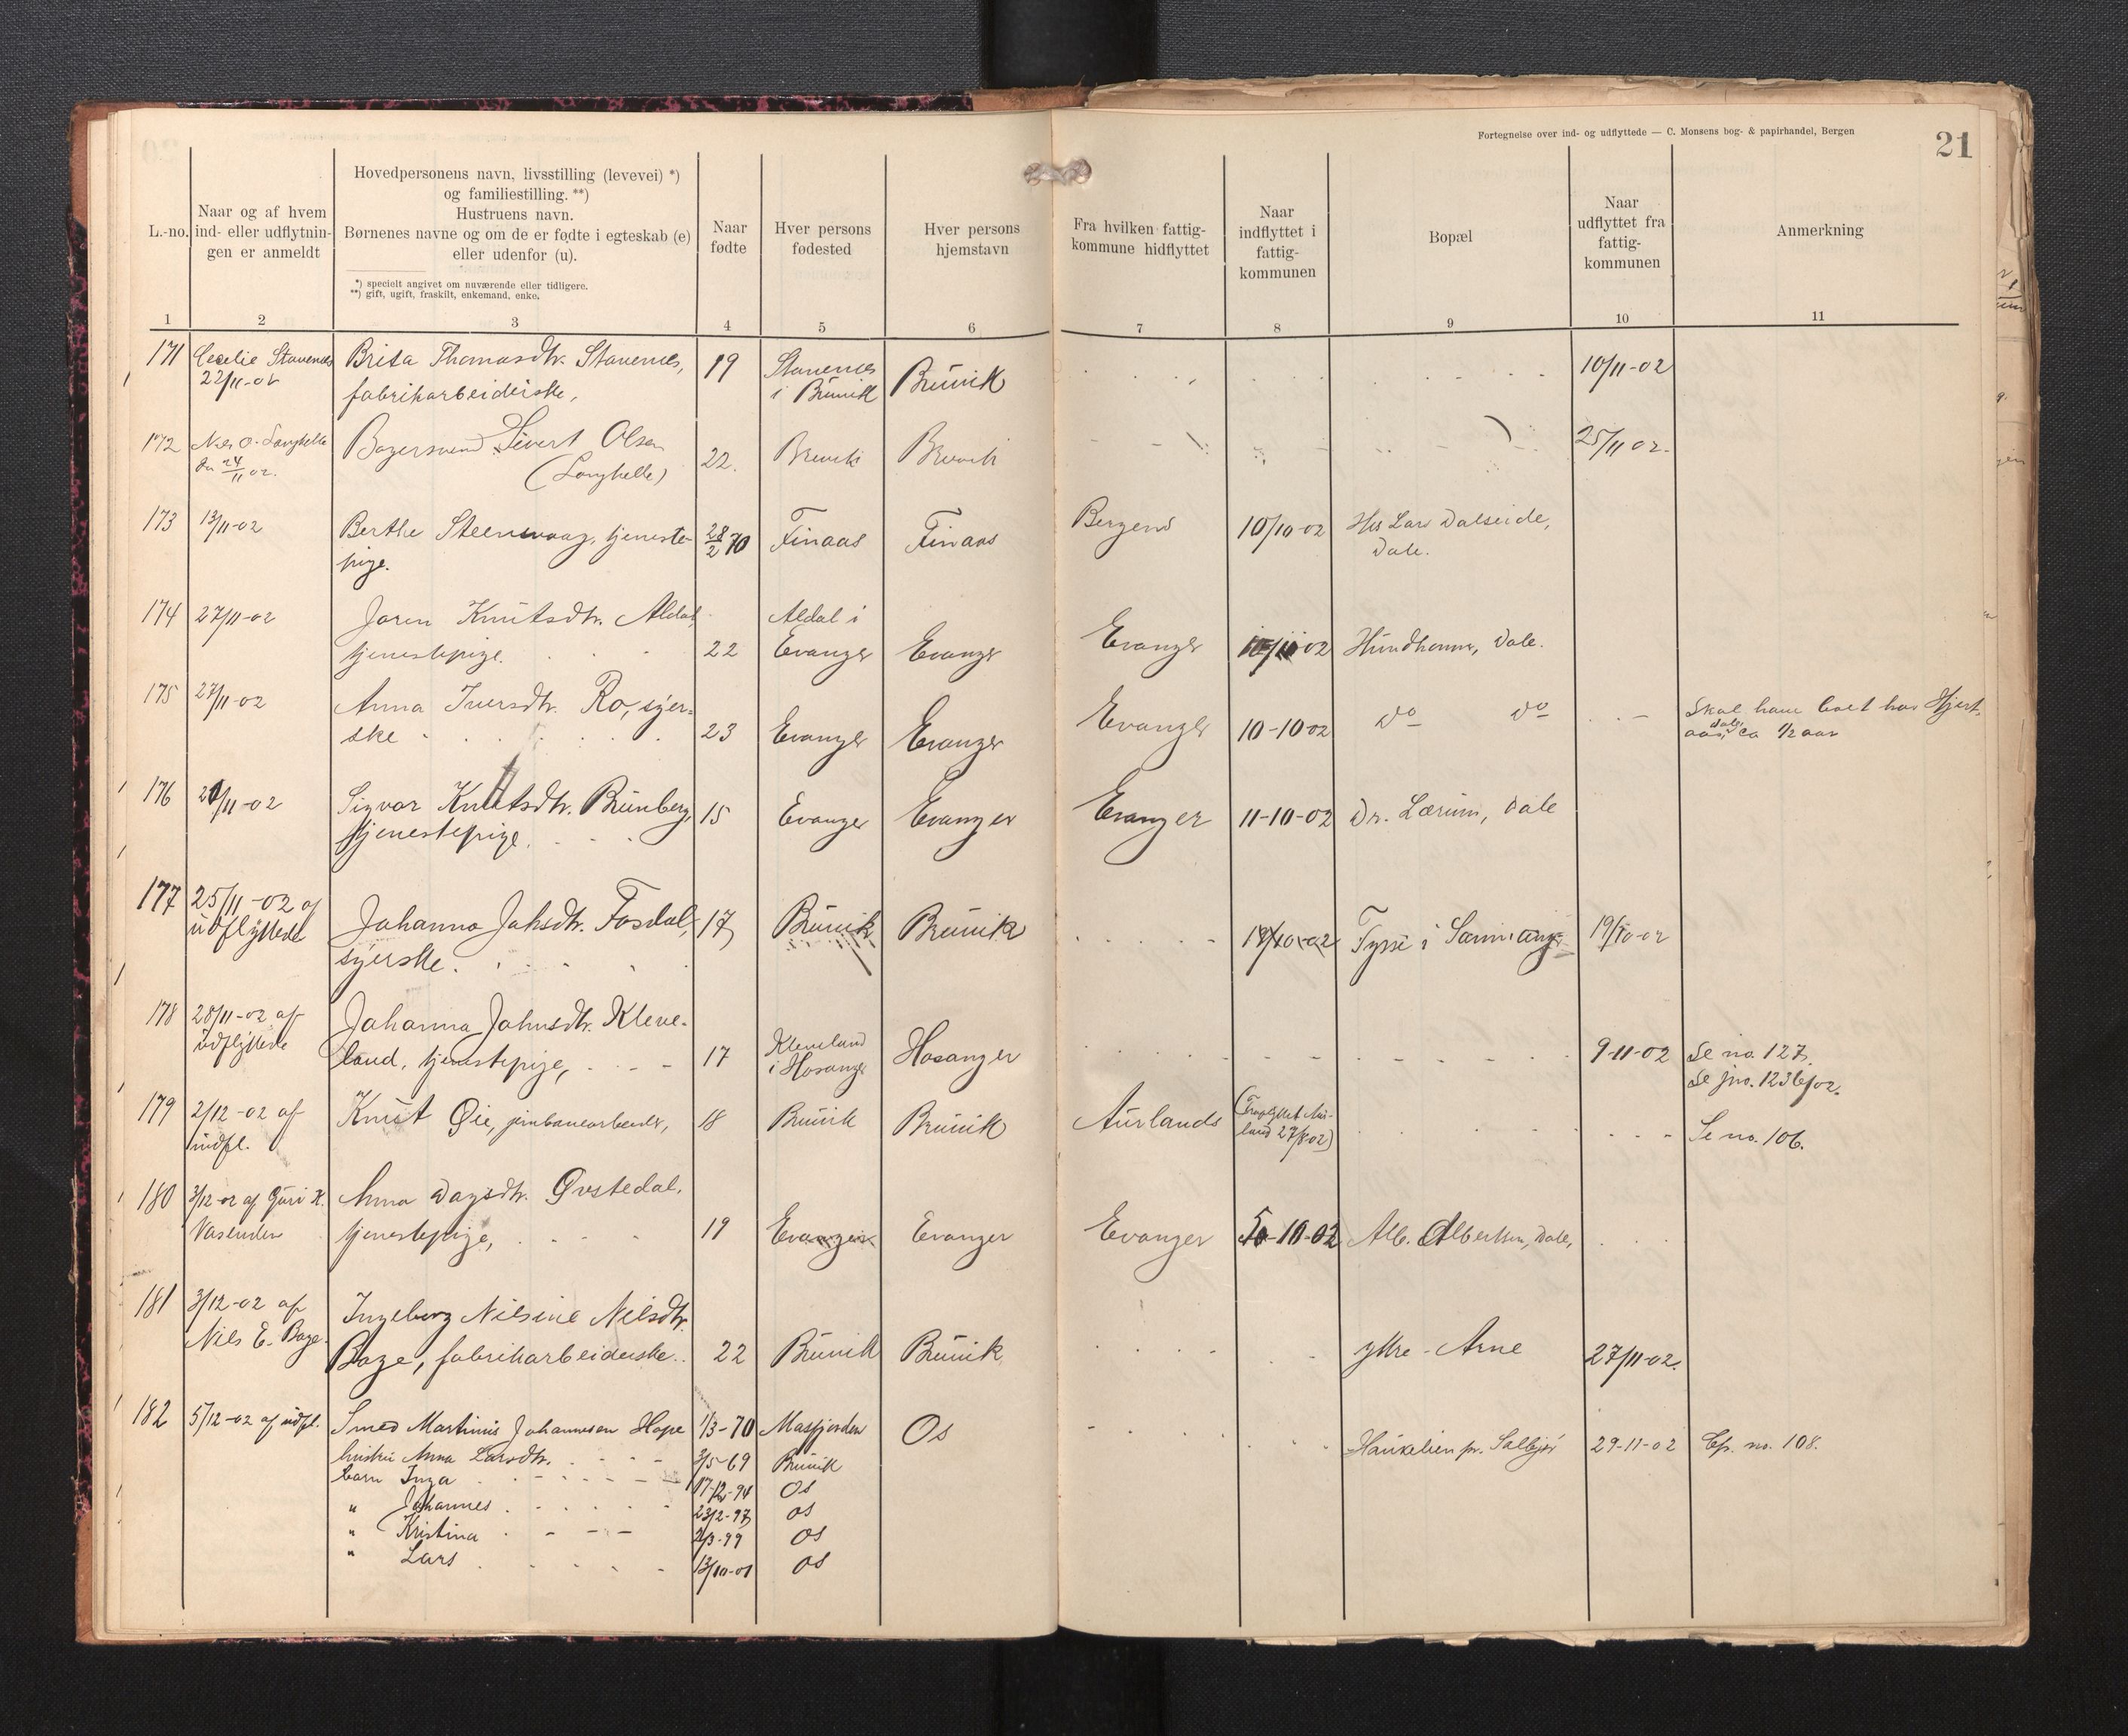 Fortegnelse over ind- og udflyttede — C. Monsens bog- & papirhandel, Bergen
21
L.-no.
Naar og af hvem
ind- eller udflytnin-
gen er anmeldt
Hovedpersonens navn, livsstilling (levevei) *)
og familiestilling. **)
Hustruens navn.
Børnenes navne og om de er fødte i egteskab (e)
eller udenfor (u).
*) specielt angivet om nuværende eller tidligere.
**) gift, ugift, fraskilt, enkemand, enke.
Naar
fødte
Hver persons
fødested
Hver persons
hjemstavn
Fra hvilken fattig-
kommune hidflyttet
Naar
indflyttet i
fattig-
kommunen
Bopæl
Naar
udflyttet fra
fattig-
kommunen
Anmerkning
1 2 3 4 5 6 7 8 9 10 11
171 Cecelie Stavenes
22/11-02
Brita Thomasdtr. Stavenes,
fabrikarbeiderske,
19
Stavenes
i Bruvik
Bruvik
10/11-02
172 Nils O. Langhelle
den 24/11 02.
Bagersvend Sivert Olsen
(Langhelle)
22.
Bruvik
Bruvik
25/11 02.
173 13/11-02
Berthe Steensvaag, tjeneste-
pige.
28/2 70
Finaas
Finaas
Bergens
10/10-02
Hos Lars Dalseide,
Dale.
174 27/11-02
Joren Knutsdtr. Aldal,
tjenestepige.
22
Aldal i
Evanger
Evanger
Evanger
02
Hundhammer, Dale.
175 27/11-02
Anna Iversdtr. Ro, syer-
ske
23
Evanger
Evanger
Evanger
10-10-02
Do Do
Skal have boet hos Hjert-
aas, Dale, ca 1/2 aar
176 /11-02
Sigvor Knutsdtr. Brunberg,
tjenestepige.
15
Evanger
Evanger
Evanger
11-10-02
Dr. Lærum, Dale
177 25/11-02 af
udflyttede
Johanna Johsdtr. Fosdal,
syerske.
17
Bruvik
Bruvik
19/10-02
Tysse i Samnanger
19/10-02
178 28/11-02 af
udflyttede
Johanna Johnsdtr. Kleve-
land, tjenestepige,
17
Kleveland
i Hosanger
Hosanger
9-11-02
Se no. 127.
Se jno. 123 02.
179 2/12-02 af
indfl.
Knut Øie, jernbanearbeider,
18
Bruvik
Bruvik
Aurlands
(Fraflyttet Aur-
land 27/8 02)
Se no. 106.
180 3/12-02 af Guri K.
Vasenden
Anna Dagsdtr. Øvstedal,
tjenestepige,
19
Evanger
Evanger
Evanger
10-02
Alb. Albertsen, Dale,
181 3/12-02 af
Nils E. Boge.
Ingeborg Nilsine Nilsdtr.
Boge, fabrikarbeiderske.
22
Bruvik
Bruvik
Ytre-Arne
27/11-02.
182 5/12-02 af udfl.
Smed Martinus Johannesen Hope 1/3-70 Masfjorden
Os
hustru Anna Larsdtr. 3/5-69 Bruvik
barn Inga 17-12-94 Os
" Johannes 23/2-97 Os
" Kristina 2/3-99 Os
" Lars 13/10-01 Os
Haukelien pr. Salbjør
29-11-02
Cfr. no. 108.